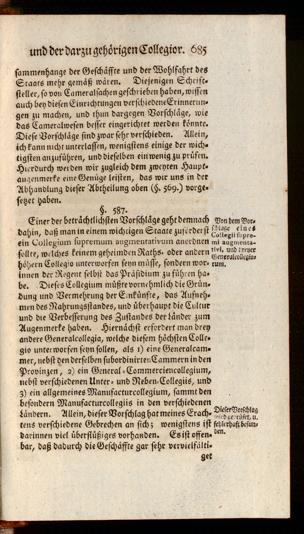 und der darzu gehörigen Collegior. 685
sammenhange der Geschäffte und der Wohlfahrt des
Staats mehr gemäß wären. Diejenigen Schrift-
steller, so von Cameralsachen geschrieben haben, wissen
auch bey diesen Einrichtungen verschiedene Erinnerun-
gen zu machen, und thun dargegen Vorschläge, wie
das Cameralwesen besser eingerichtet werden könnte.
Diese Vorschläge sind zwar sehr verschieden. Allein,
ich kann nicht unterlassen, wenigstens einige der wich-
tigsten anzuführen, und dieselben ein wenig zu prüfen.
Hierdurch werden wir zugleich dem zweyten Haupt-
augenmerke eine Genüge leisten, das wir uns in der
Abhandlung dieser Abtheilung oben (§. 569.) vorge-
setzet haben.
§. 587.
Einer der beträchtlichsten Vorschläge geht demnach
dahin, daß man in einem wichtigen Staate zuförderst
ein Collegium supremum augmentativum anordnen
sollte, welches keinem geheimden Raths- oder andern
höhern Collegio unterworfen seyn müßte, sondern wor-
innen der Regent selbst das Präsidium zu führen ha-
be. Dieses Collegium müßte vornehmlich die Grün-
dung und Vermehrung der Einkünfte, das Aufneh-
men des Nahrungsstandes, und überhaupt die Cultur
und die Verbesserung des Zustandes der Länder zum
Augenmerke haben. Hiernächst erfordert man drey
andere Generalcollegia, welche diesem höchsten Colle-
gio unterworfen seyn sollen, als 1) eine Generalcam-
mer, nebst den derselben subordinirten Cammern in den
Provinzen, 2) ein General-Commerciencollegium,
nebst verschiedenen Unter- und Neben-Collegiis, und
3) ein allgemeines Manufacturcollegium, sammt den
besondern Manufacturcollegiis in den verschiedenen
Ländern. Allein, dieser Vorschlag hat meines Erach-
tens verschiedene Gebrechen an sich; wenigstens ist
darinnen viel überflüßiges vorhanden. Es ist offen-
bar, daß dadurch die Geschäffte gar sehr vervielfälti-
get
Von dem Vor-
schlage eines
Collegii supre-
mi augmenta-
tivi, und dreyer
Generalcollegio-
rum.
Dieser Vorschlag
wird geprüfet, u.
fehlerhaft befun-
den.